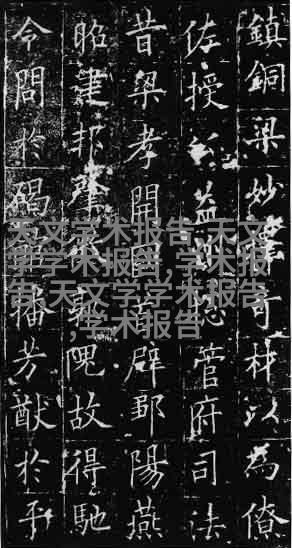 鎮銅梁妙擇奇材以為僚
佐授益州總管府司法
昔梁孝開國首辟鄒陽燕
昭建邦肇隗故得馳
令問於碣館播芳猷於平
天文学术报告,天文
学学术报告,学术报
告,天文学学术报告
,学术报告